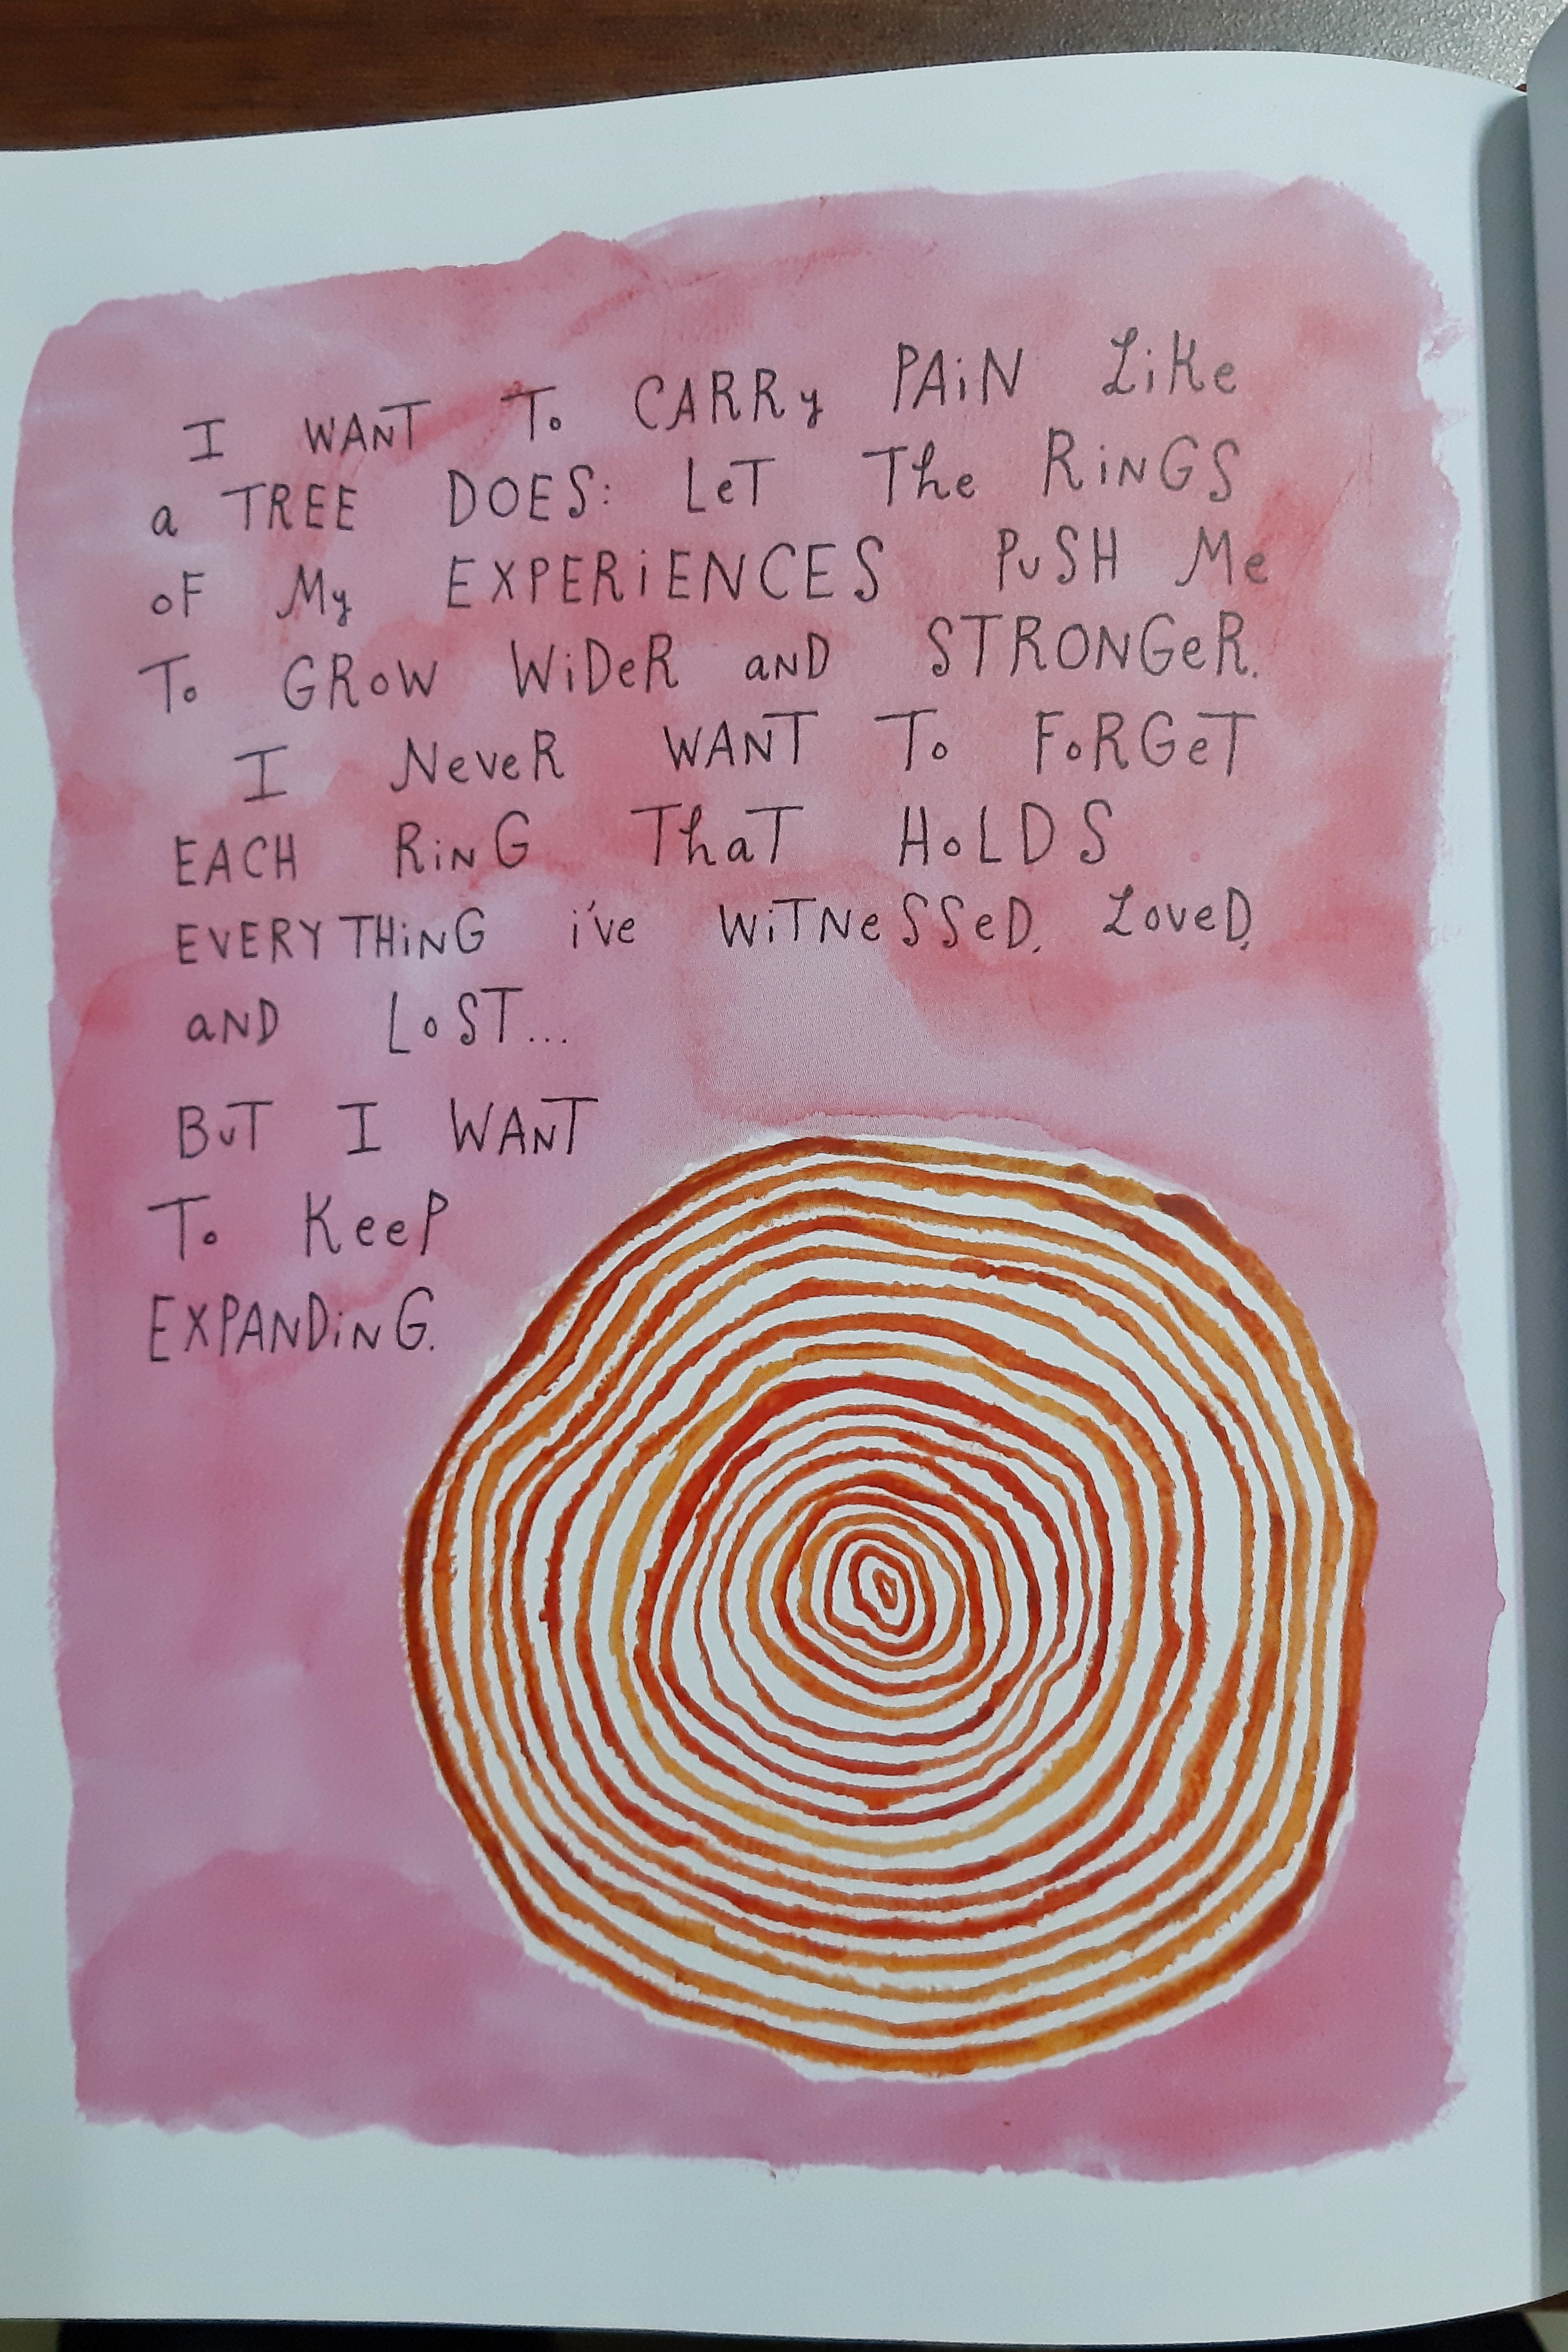 I WANT To CARRy PAiN LiKe
a TREE DOES: LeT The RiNGS
oF My EXPERiENCES PuSH Me
To GRoW WiDeR aND STRONGeR.
I NeveR WANT To FoRGeT
EACH RiNG ThaT HoLDS
EVERYTHiNG i've WiTNeSSeD, LoveD,
aND LoST...
BuT I WANT
To KeeP
EXPANDiNG.